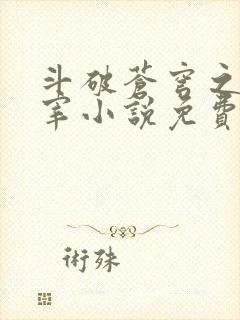 斗破蒼穹之
宰小說免費
術殊